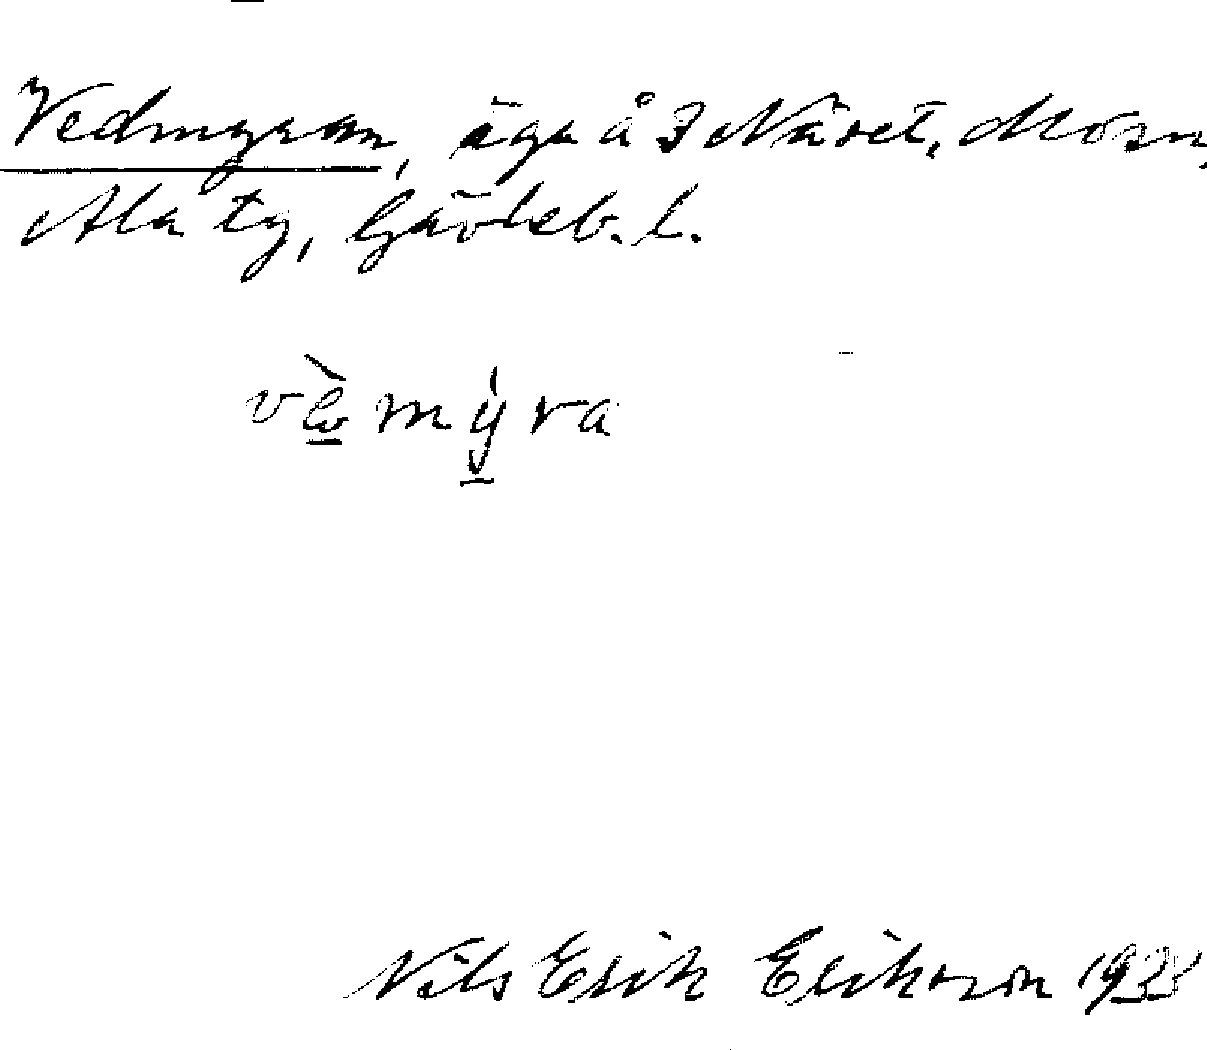 Vedmyran, äga å 3 Näset, Mosn,
Ala ty, Gävleb. l.
vèmýra
Nils Erik Erikson 1933